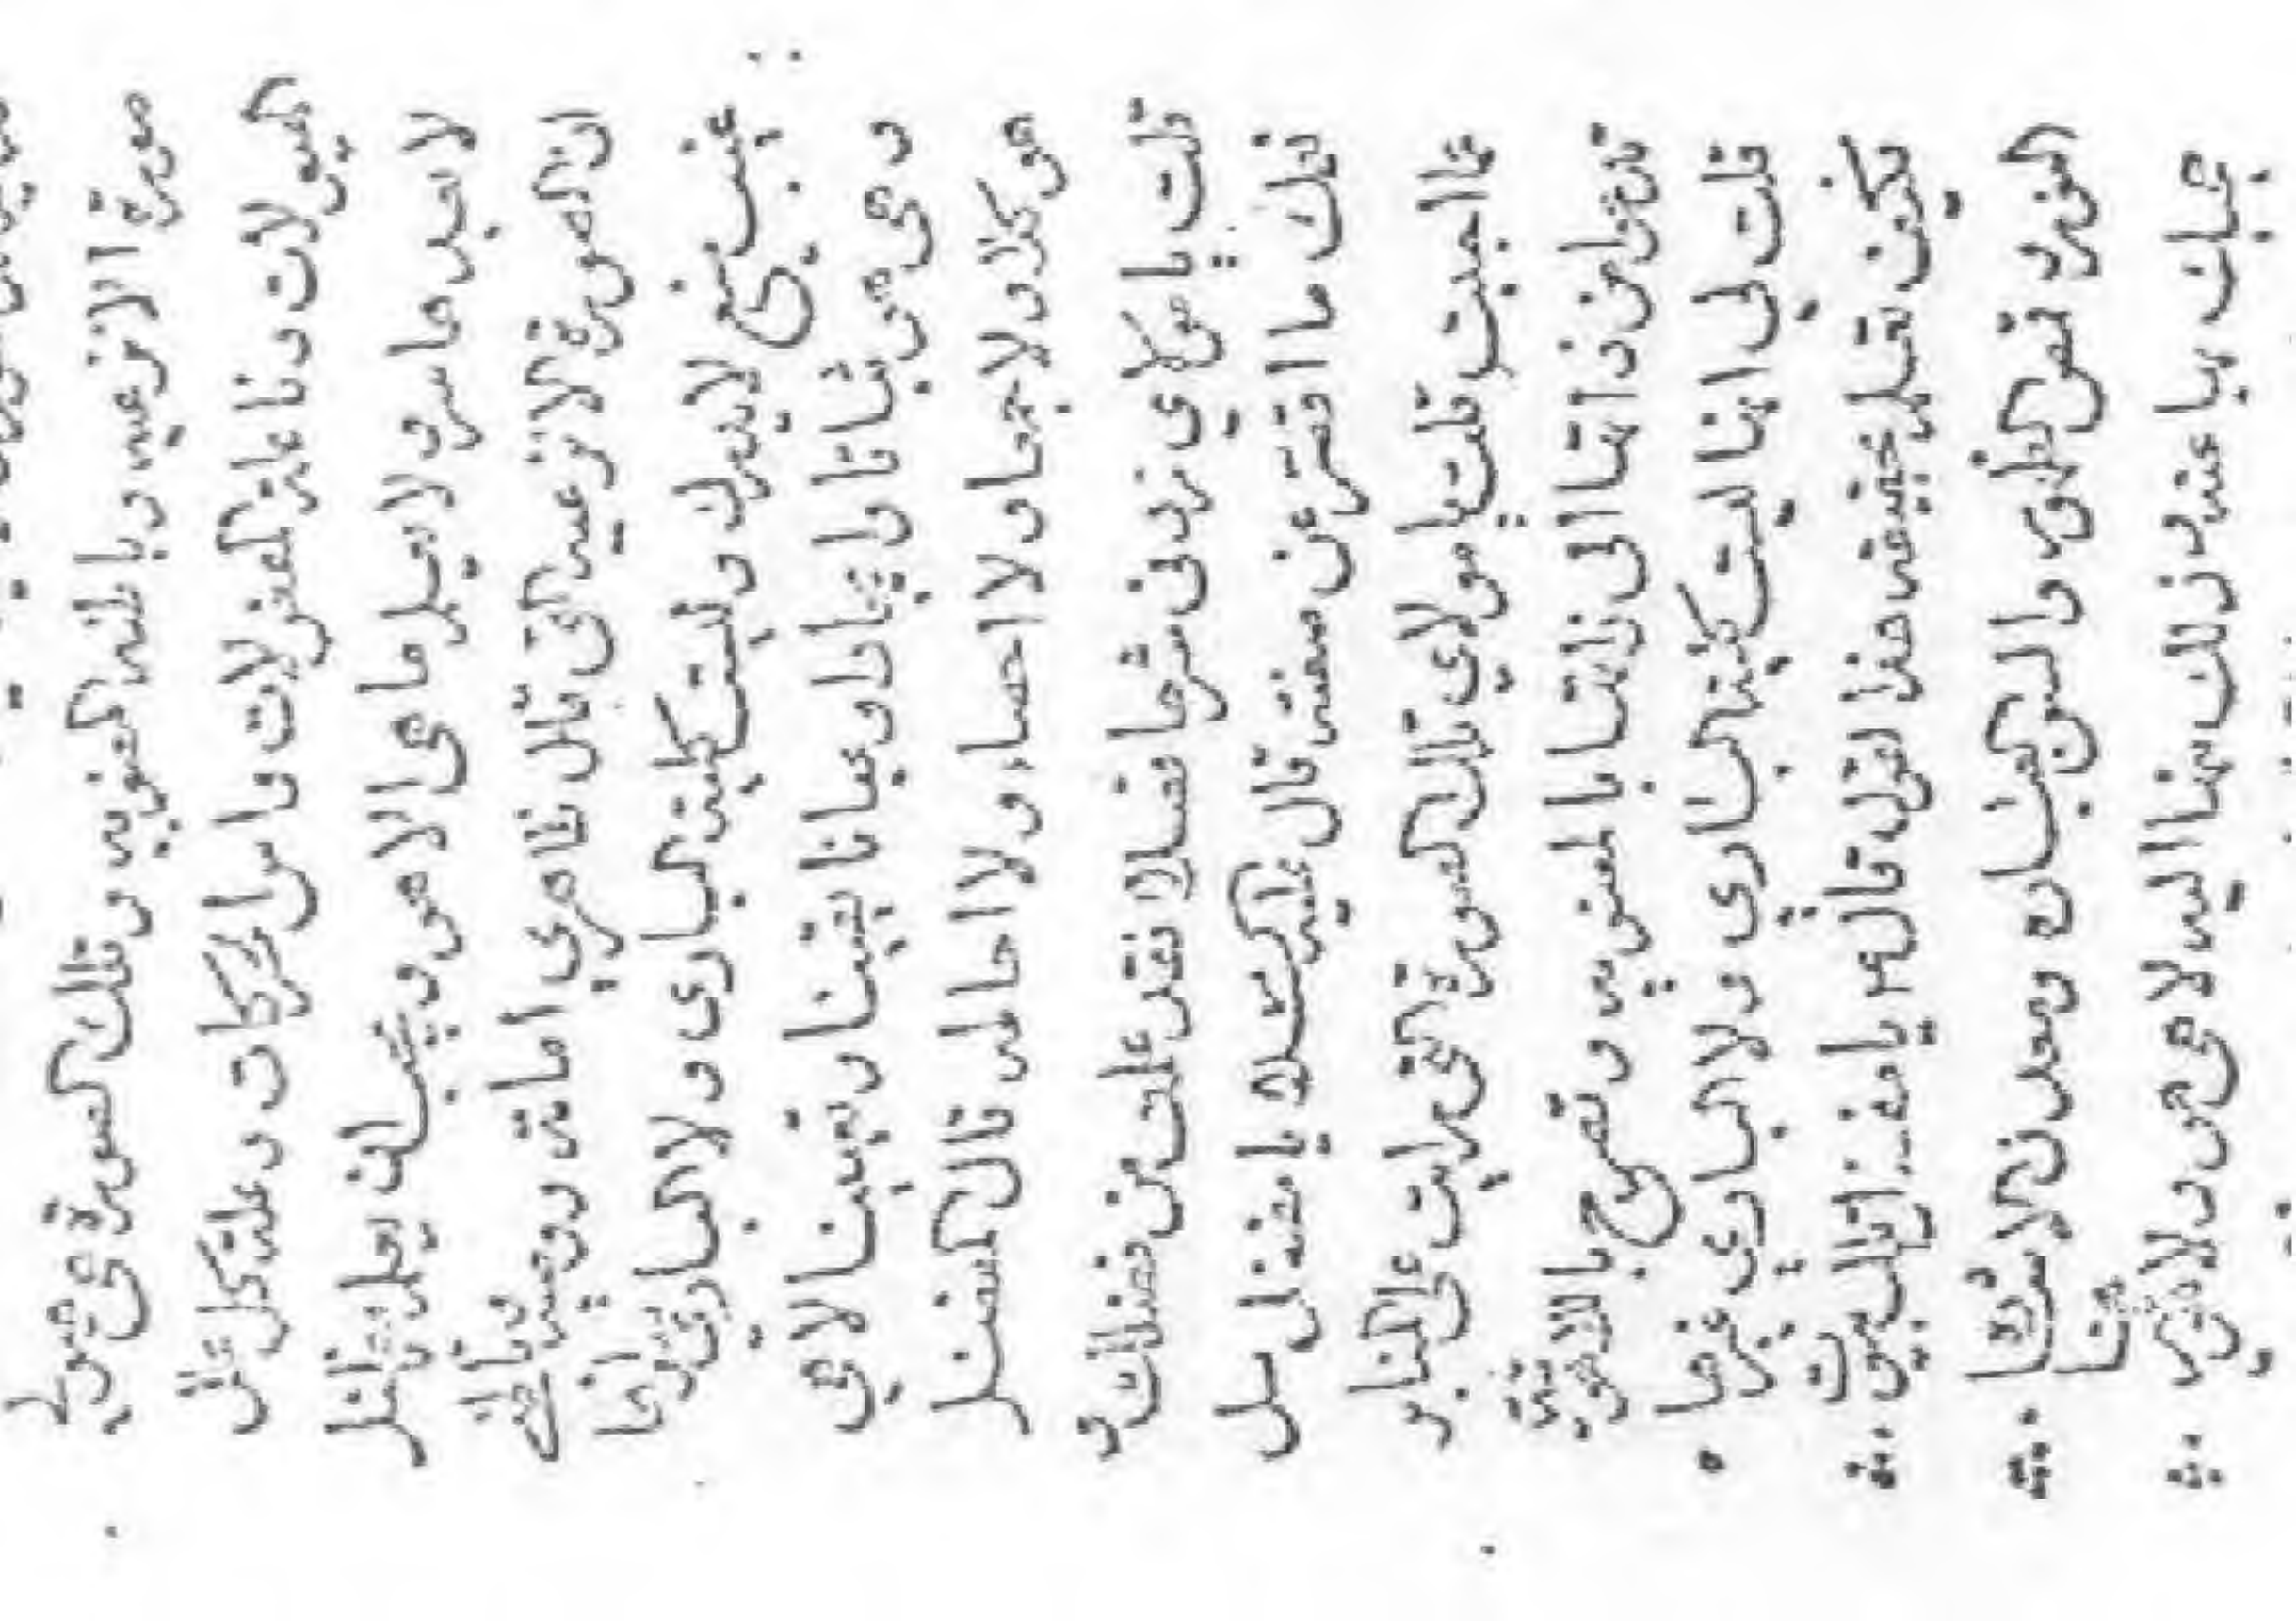 صورة الانزعيه وباطنه الغويه وتلك الصورة هي هيولي
الهيولات وفاعلة المفعولات واس الحركات وعلة كل علل
لا بعدها سر ولا يعلم ما هي الا هو ويجب ان يعلم يا مفضل
ان الصورة الانزعيه التي قالت ظاهري امامة ووصيه وباطني
غيب منيع لا يدرك وليست كلية الباري ولا الباري سواها
وهي هو اثباتا وايجادا وعيانا يقينا وتعيينا لا هي
هو كلا ولا جمعا ولا احصاء ولا احاطه قال المفضل
قلت يا مولاي زدني شرحا فضلا فقد علمت من فضلك و
نعمك ما اقصر عن صفته قال عليه السلام يا مفضل سل
عما احببت قلت يا مولاي تلك الصورة التي رايت على المنابر
تدعوا من ذاتها الى ذاتها بالمعنويه وتصرح بالاهوتية
قلت لي انها ليست كلية الباري ولا الباري غيرها
فكيف تعلم حقيقة هذا القول قال يا مفضل تلك بيوت
النور وقمص الظهور والسن العباره ومعدن الاشارة
حجبك بها عنه ودلك منها اليه لا هي هو ولا غيره